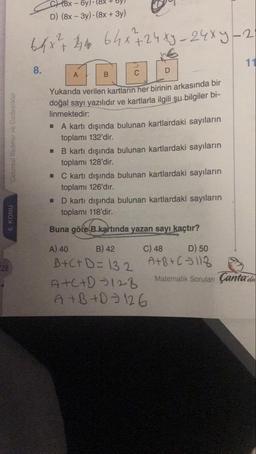 C) (8x – 6y)·(8x + 6y)
D) (8x – 3y)·(8x + 3y)
64x²+24xy–24xy–2
8.
A
B
C
D
11
Yukarıda verilen kartların her birinin arkasında bir
doğal sayı yazılıdır ve kartlarla ilgili şu bilgiler bi-
linmektedir:
▪ A kartı dışında bulunan kartlardaki sayıların
toplamı 132'dir.
▪ B kartı dışında bulunan kartlardaki sayıların
toplamı 128'dir.
▪ C kartı dışında bulunan kartlardaki sayıların
toplamı 126'dır.
▪ D kartı dışında bulunan kartlardaki sayıların
toplamı 118'dir.
Buna göre B kartında yazan sayı kaçtır?
A) 40 B) 42 C) 48 D) 50
B+C+D=132 A+B+C→118
A+C+D→128
A+B+D→126
Matematik Soruları Çanta'da
6. KONU
Cebirsel İfadeler ve Özdeşlikler
28